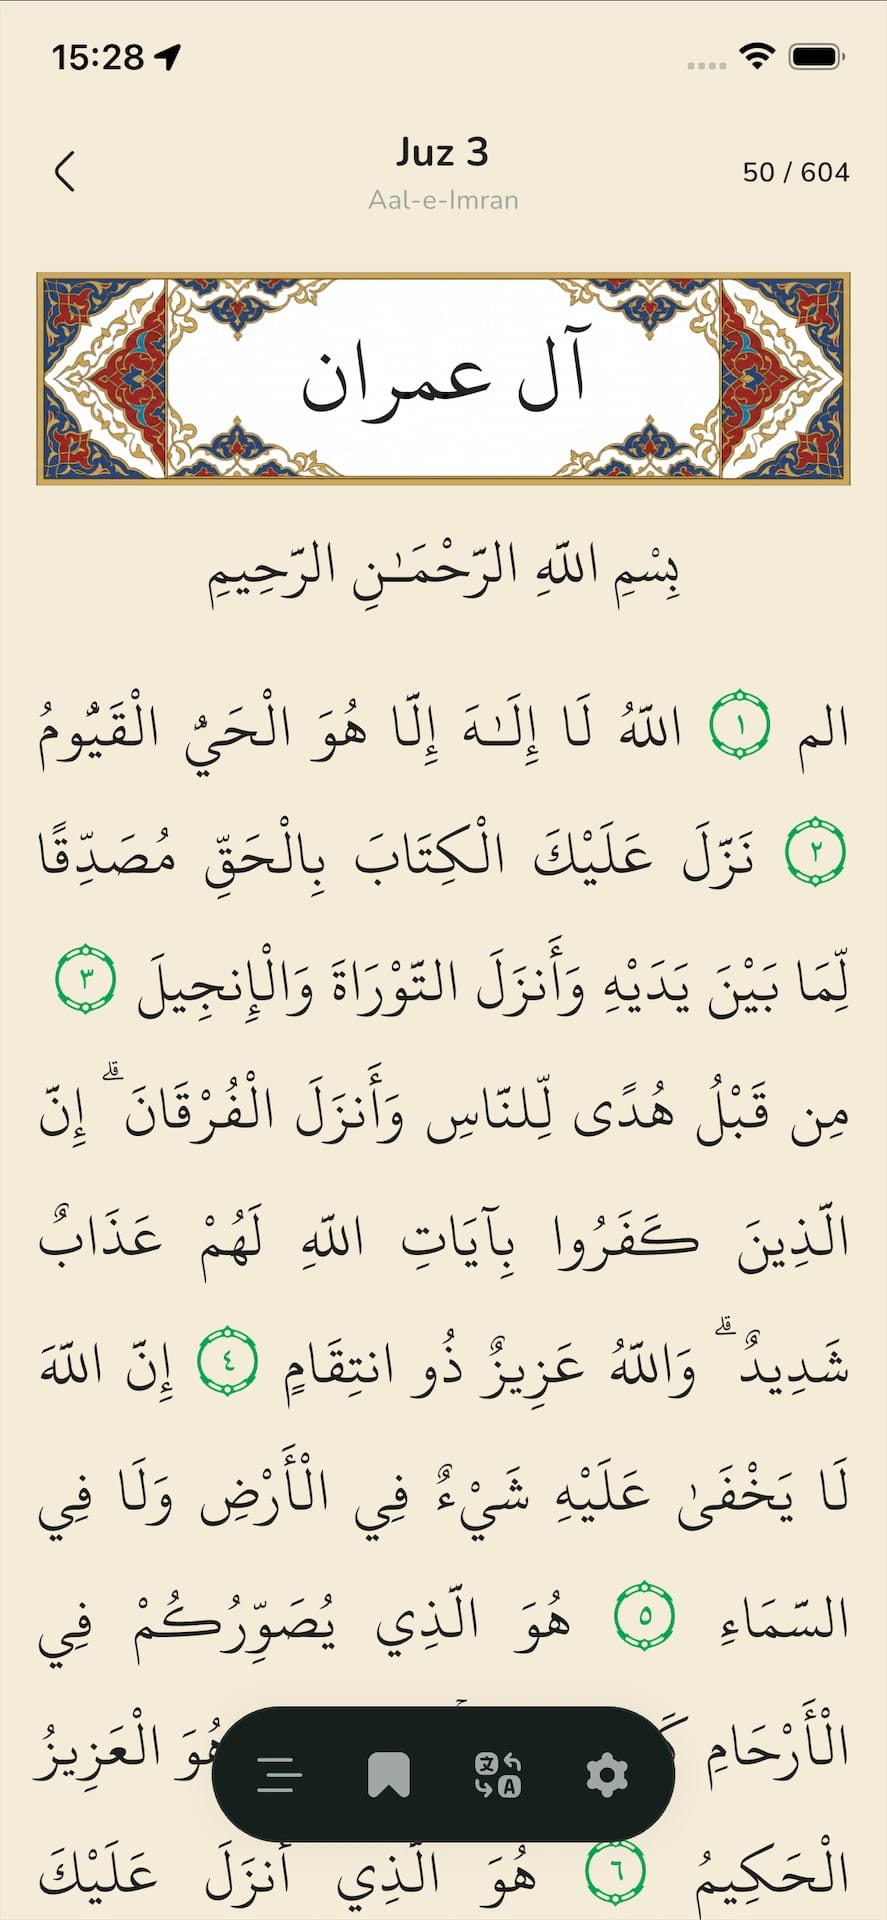 15:28
Juz 3
Aal-e-Imran
50 / 604
آل عمران
بِسْمِ اللَّهِ الرَّحْمَـٰنِ الرَّحِيمِ
الم ١ اللَّهُ لَا إِلَـٰهَ إِلَّا هُوَ الْحَيُّ الْقَيُّومُ
٢ نَزَّلَ عَلَيْكَ الْكِتَابَ بِالْحَقِّ مُصَدِّقًا
لِّمَا بَيْنَ يَدَيْهِ وَأَنزَلَ التَّوْرَاةَ وَالْإِنجِيلَ ٣
مِن قَبْلُ هُدًى لِّلنَّاسِ وَأَنزَلَ الْفُرْقَانَ ۗ إِنَّ
الَّذِينَ كَفَرُوا بِآيَاتِ اللَّهِ لَهُمْ عَذَابٌ
شَدِيدٌ ۗ وَاللَّهُ عَزِيزٌ ذُو انتِقَامٍ ٤ إِنَّ اللَّهَ
لَا يَخْفَىٰ عَلَيْهِ شَيْءٌ فِي الْأَرْضِ وَلَا فِي
السَّمَاءِ ٥ هُوَ الَّذِي يُصَوِّرُكُمْ فِي
الْأَرْحَامِ هُوَ الْعَزِيزُ
الْحَكِيمُ ٦ هُوَ الَّذِي أَنزَلَ عَلَيْكَ